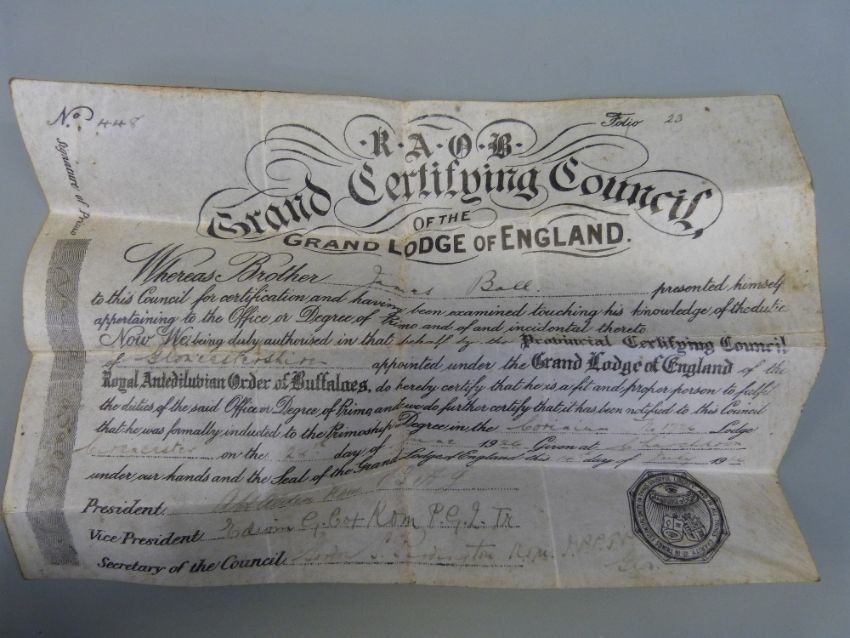 No. 448
Folio 23
Signature of Primo
·R·A·O·B·
Grand Certifying Council,
OF THE
GRAND LODGE OF ENGLAND.
Whereas Brother James Ball presented himself
to this Council for certification and having been examined touching his knowledge of the duties
appertaining to the Office or Degree of Primo and of and incidental thereto
Now We, being duly authorised in that behalf by the Provincial Certifying Council
of Gloucestershire appointed under the Grand Lodge of England of the
Royal Antediluvian Order of Buffaloes, do hereby certify that he is a fit and proper person to fulfil
the duties of the said Office or Degree of Primo, and we do further certify that it has been notified to this Council
that he was formally inducted to the Primoship Degree in the Lodge
on the day of 1926 Given at
under our hands and the Seal of the Grand Lodge of England this day of 19
President
Vice President Edwin G. Cox KOM P.G.L. Tr
Secretary of the Council